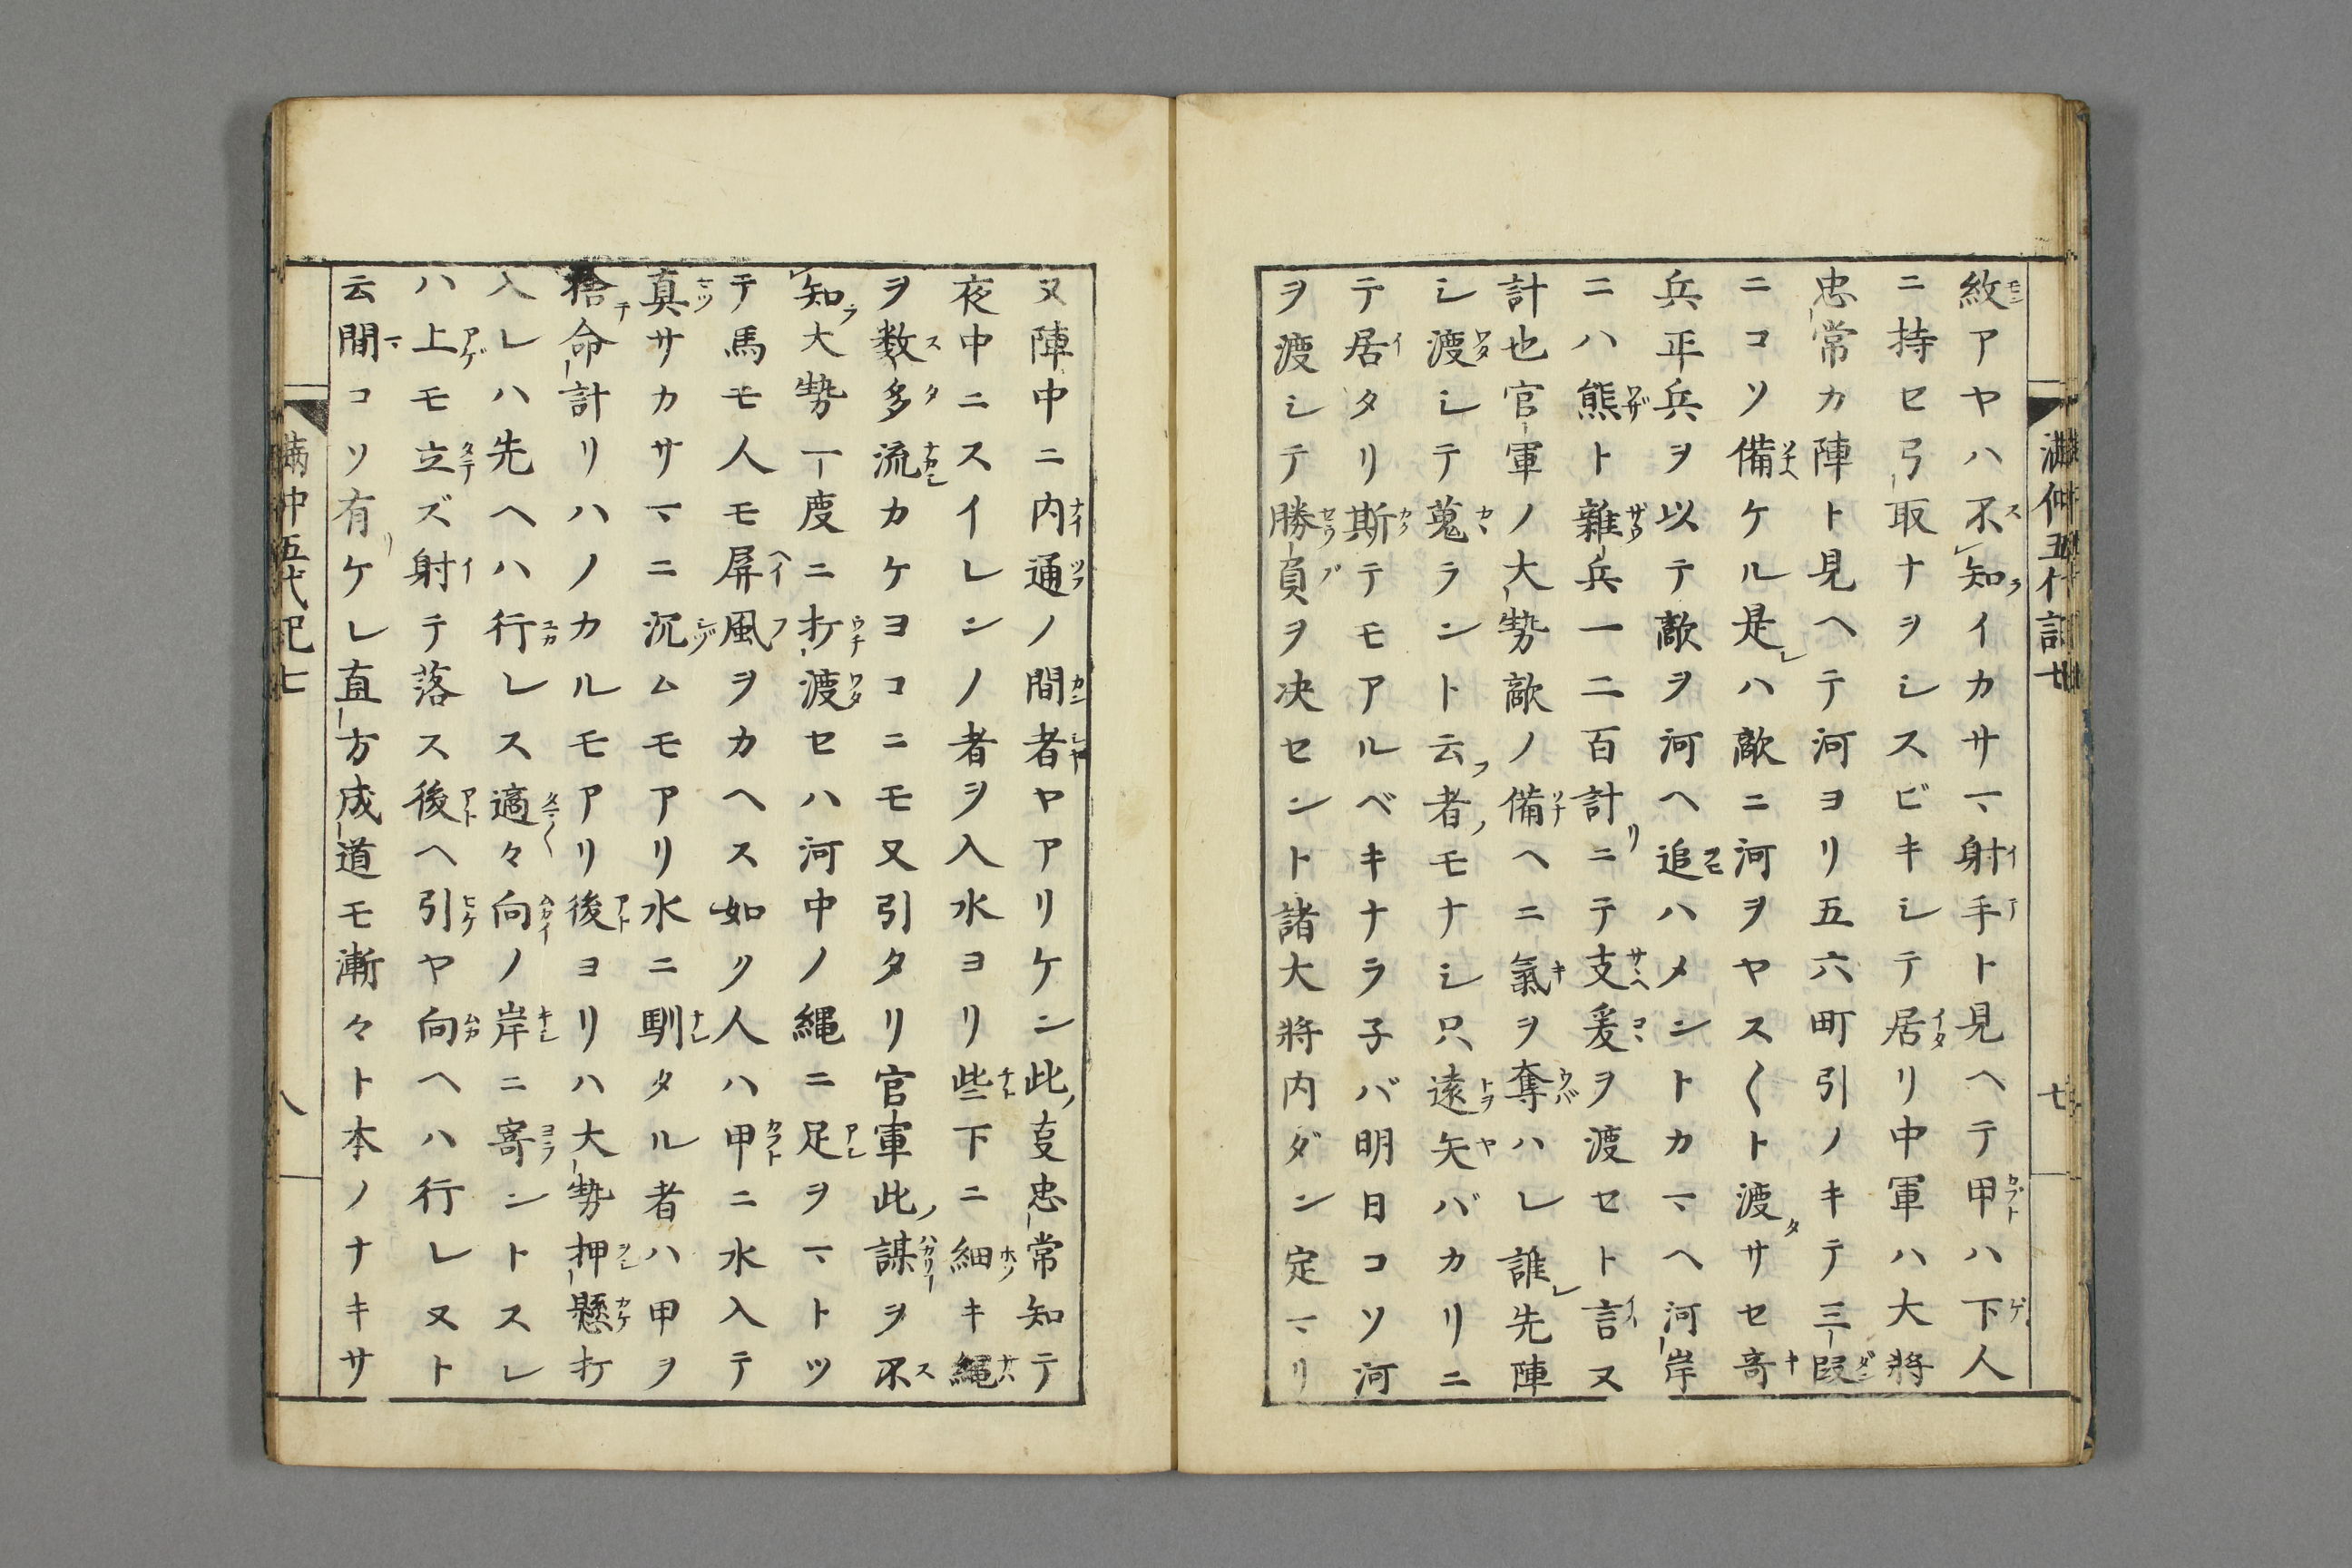 満仲五代記七
七
紋アヤハ不知イカサマ射手ト見ヘテ甲ハ下人
ニ持セ弓取ナヲシスビキシテ居リ中軍ハ大将
忠常カ陣ト見ヘテ河ヨリ五六町引ノキテ三段
ニコソ備ケル是ハ敵ニ河ヲヤス〱ト渡サセ奇
兵平兵ヲ以テ敵ヲ河ヘ追ハメントカマヘ河岸
ニハ熊ト雜兵一二百計ニテ支爰ヲ渡セト言ヌ
計也官軍ノ大勢敵ノ備ヘニ氣ヲ奪ハレ誰先陣
シ渡シテ蒐ラント云者モナシ只遠矢バカリニ
テ居タリ斯テモアルベキナラ子バ明日コソ河
ヲ渡シテ勝負ヲ决セント諸大将内ダン定マリ
又陣中ニ内通ノ間者ヤアリケン此夏忠常知テ
夜中ニスイレンノ者ヲ入水ヨリ些下ニ細キ縄
ヲ数多流カケヨコニモ又引タリ官軍此謀ヲ不
知大勢一度ニ打渡セハ河中ノ縄ニ足ヲマトツ
テ馬モ人モ屏風ヲカヘス如ク人ハ甲ニ水入テ
真サカサマニ沉ムモアリ水ニ馴タル者ハ甲ヲ
捨命計リハノカルモアリ後ヨリハ大勢押懸打
入レハ先ヘハ行レス適々向ノ岸ニ寄ントスレ
ハ上モ立ズ射テ落ス後ヘ引ヤ向ヘハ行レヌト
云間コソ有ケレ直方成道モ漸々ト本ノナキサ
満仲五代記七
八